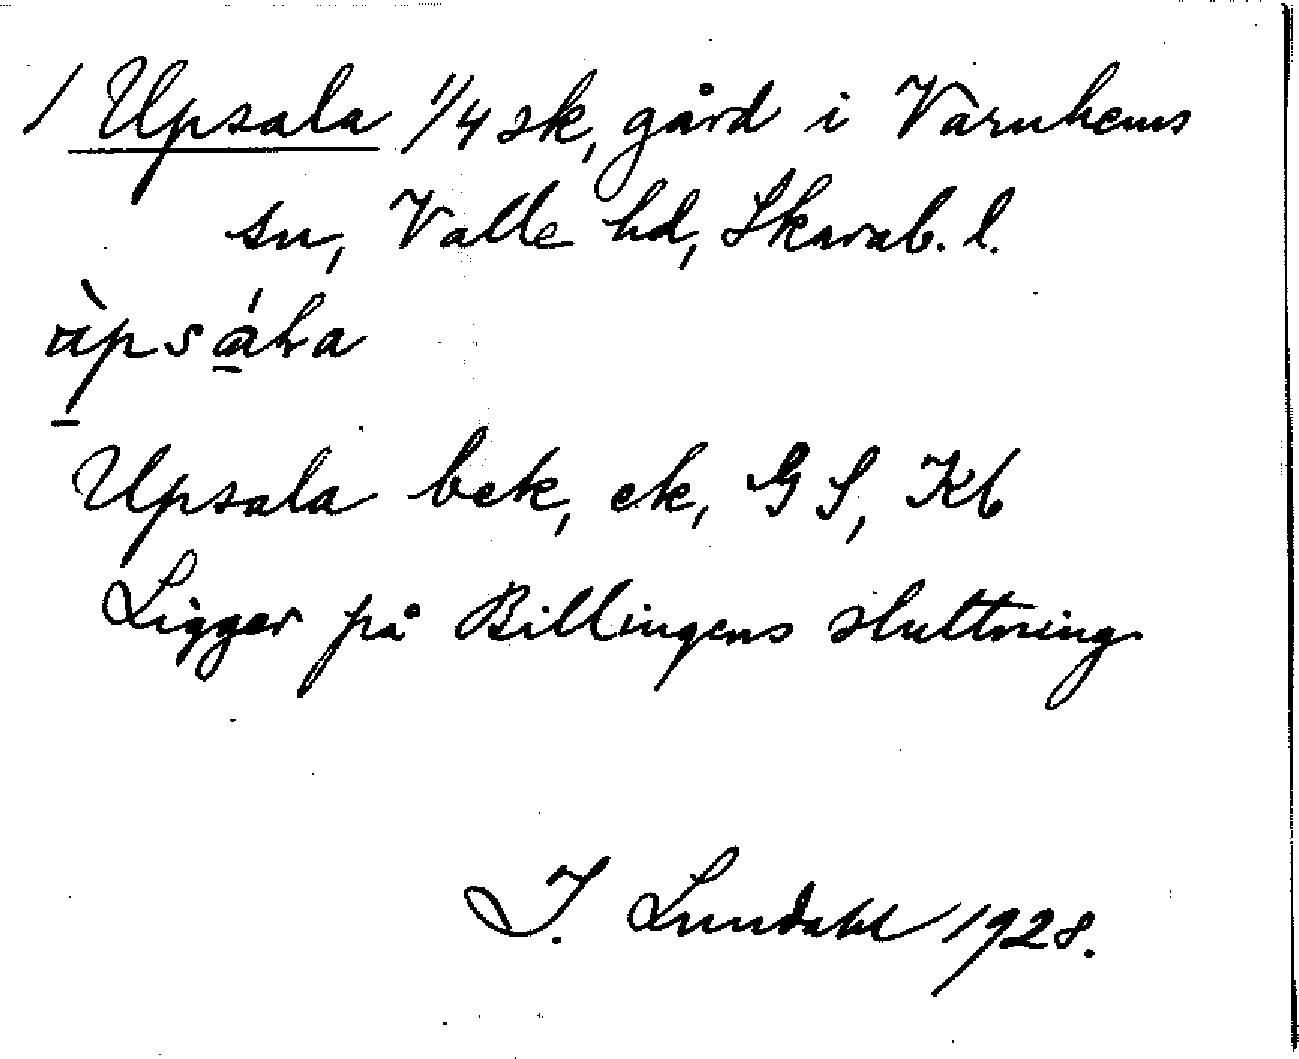 / Upsala 1/4 sk, gård i Varnhems
sn, Valle hd, Skarab. l.
Upsala bek, ek, GS, Kb
Ligger på Billingens sluttning.
I. Lundahl 1928.